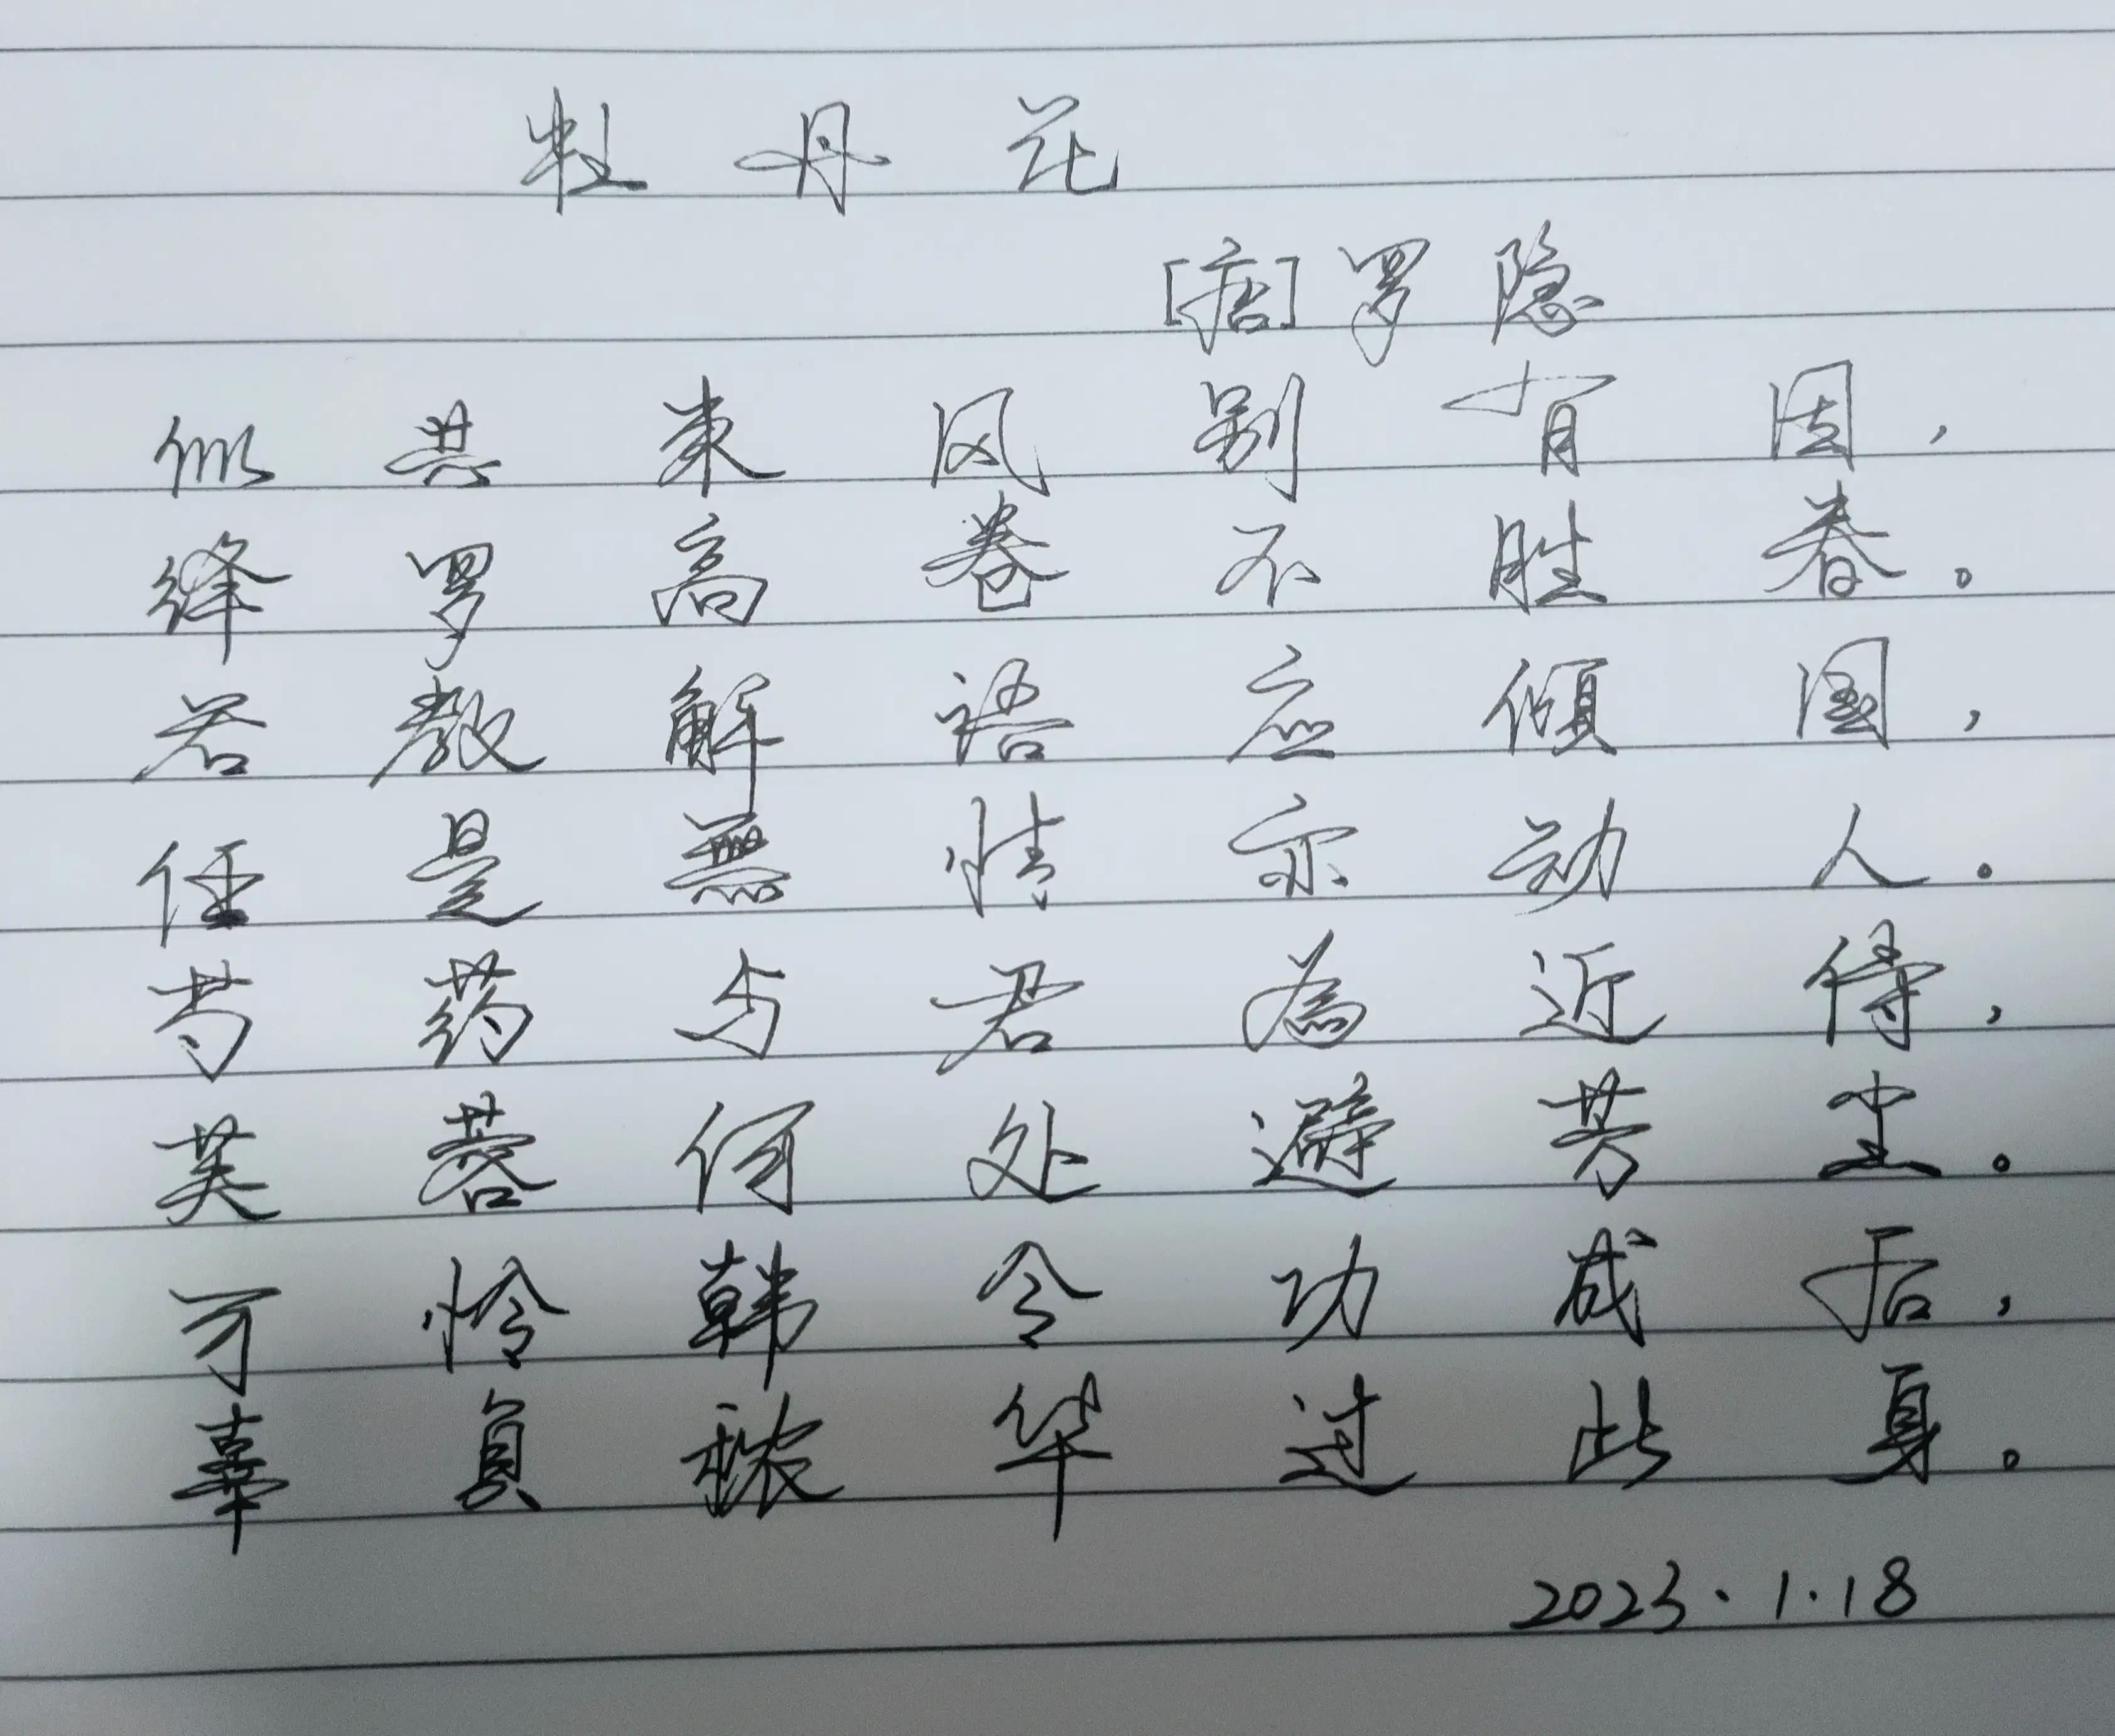 牡丹花
[唐]罗隐
似共东风别有因,
绛罗高卷不胜春。
若教解语应倾国,
任是無情亦动人。
芍药与君為近侍,
芙蓉何处避芳尘。
可怜韩令功成后,
辜负秾华过此身。
2023.1.18